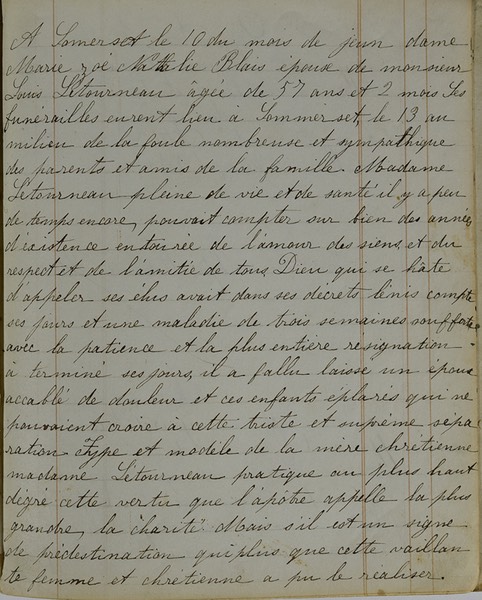 A Somerset le 10 du mois de jeun dame
Marie zoé Nathalie Blais épouse de monsieur
Louis Létourneau agée de 57 ans et 2 mois Ses
funérailles eurent lieu à Sommerset, le 13 au
milieu de la foule nombreuse et sympathique
des parents et amis de la famille. Madame
Létourneau pleine de vie et de santé il y a peu
de temps encore, pouvait compter sur bien des années
d'existence entourée de l'amour des siens, et du
respect et de l'amitié de tous, Dieu qui se hâte
d'appeler ses élus avait dans ses décrets bénis compté
ses jours et une maladie de trois semaines soufferte
avec la patience et la plus entière resignation
a terminé ses jours, il a fallu laisse un époux
accablé de douleur et ces enfants éplorés qui ne
pouvaient croire à cette triste et suprême sépa
ration. Type et modèle de la mère chretienne
madame Létourneau pratique au plus haut
dégré cette vertu que l'apôtre appelle la plus
grande, la charité. Mais s'il est un signe
de prédestination qui plus que cette vaillan
te femme et chrétienne a pu le réaliser.